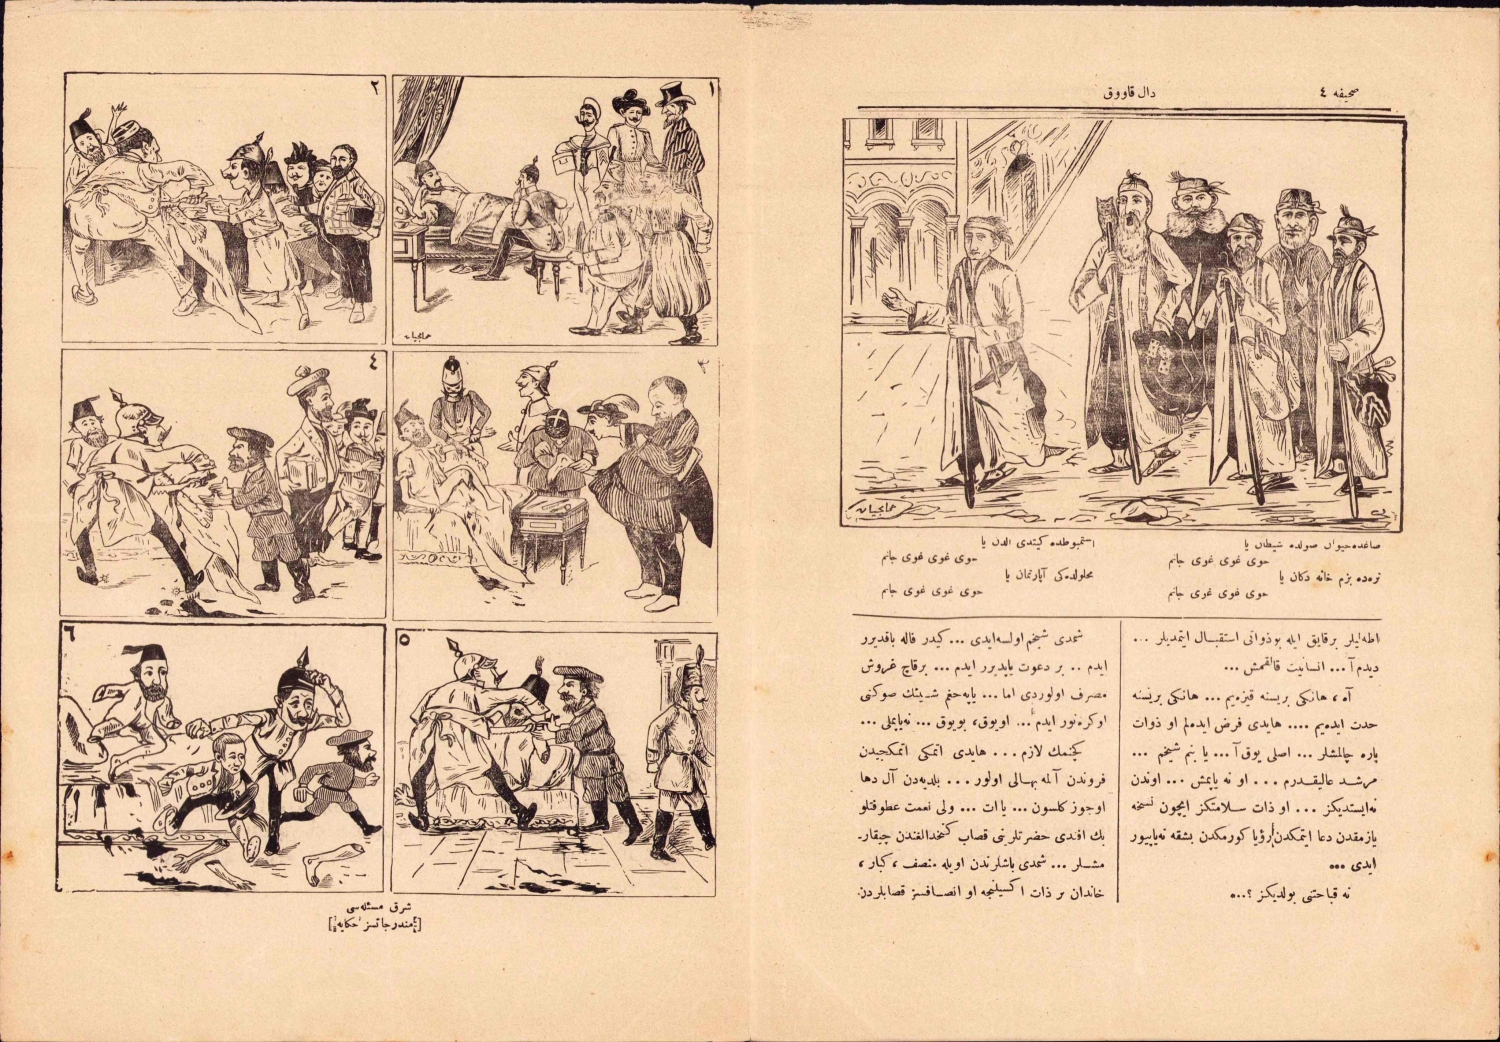 صحیفه ٤
دال قاووق
صاغده حیوان صولده شیطان یا
هوی غوی غوی جانم
نره‌ده بزم خانه دکان یا
هوی غوی غوی جانم
استمبوطده کیتدی الدن یا
هوی غوی غوی جانم
محلولده‌کی آپارتمان یا
هوی غوی غوی جانم
اطه‌لیلر برقایق ایله بو ذواتی استقبال ایتمدیلر ...
دیدم آ... انسانیت قالقمش ...
آه، هانکی بریسنه قیزه‌یم ... هانکی بریسنه
حدت ایده‌یم .... هایدی فرض ایده‌لم او ذوات
پاره چالمشلر ... اصلی یوق آ... یا بنم شیخم ...
مرشد عالیقدرم .... او نه یاپمش ... اوندن
نه‌ایستدیکز ... او ذات سلامتکز ایچون نسخه
یازمقدن دعا ایتمکدن رؤیا کورمکدن بشقه نه یاپیور
ایدی ...
نه قباحتنی بولدیکز ؟...
شمدی شیخم اولسه‌ایدی ... کیدر فاله باقدیرر
ایدم .. بر دعوت یاپدیرر ایدم ... برقاچ غروش
مصرف اولوردی اما ...
کچنمك لازم ... هایدی اتمکی اتمکجیدن
فروندن آلمه بهالی اولور ... بلدیه‌دن آل دها
اوجوز کلسون ... یا ات ... ولی نعمت عطوفتلو
بك افندی حضرتلرینی قصاب کتخدالغندن چیقار-
مشلر ... شمدی باشلرندن اویله منصف، کبار،
خاندان بر ذات اکسیلنجه او انصافسز قصابلردن
١
٢
٣
٤
٥
٦
شرق مسئله‌سی
[مندرجاتسز حکایه]